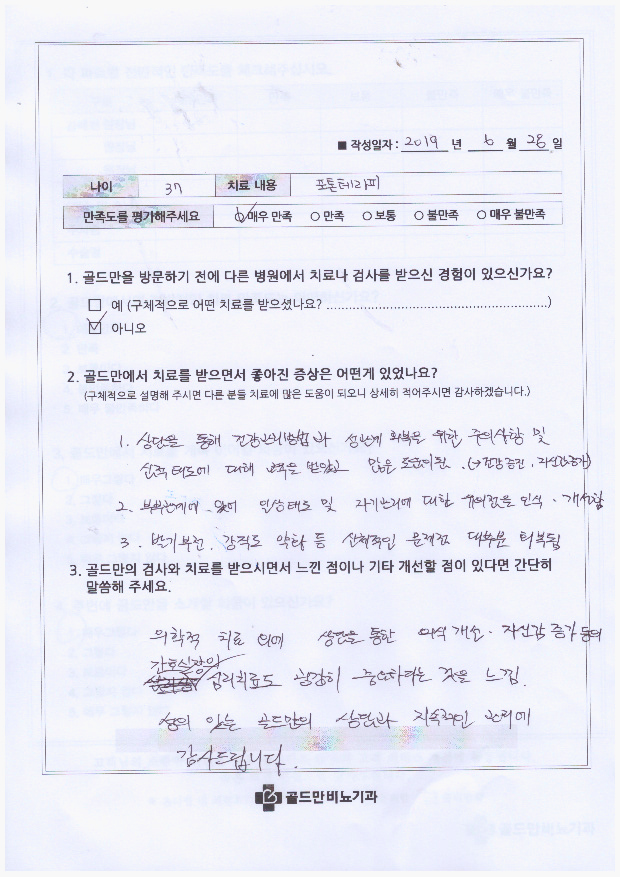 ■ 작성일자 : 2019 년 6 월 28 일
나이 37 치료 내용 포톤테라피
만족도를 평가해주세요 매우 만족 만족 보통 불만족 매우 불만족
1. 골드만을 방문하기 전에 다른 병원에서 치료나 검사를 받으신 경험이 있으신가요?
예 (구체적으로 어떤 치료를 받으셨나요? ............................................................)
아니오
2. 골드만에서 치료를 받으면서 좋아진 증상은 어떤게 있었나요?
(구체적으로 설명해 주시면 다른 분들 치료에 많은 도움이 되오니 상세히 적어주시면 감사하겠습니다.)
1. 상담을 통해 건강관리방법과 성관계 회복을 위한 주의사항 및
심적 태도에 대해 많은 도움이 됨. (→ 건강증진, 자신감증가)
2. 부부관계에 있어 일상태도 및 자기관리에 대한 유의점을 인식 · 개선함
3. 발기부전, 강직도 약화 등 신체적인 문제점 대부분 회복됨
3. 골드만의 검사와 치료를 받으시면서 느낀 점이나 기타 개선할 점이 있다면 간단히
말씀해 주세요.
의학적 치료 외에 상담을 통한 의식 개선 · 자신감 증가 등의
간호실장의
심리치료도 굉장히 중요하다는 것을 느낌.
성의 있는 골드만의 상담과 지속적인 관리에
감사드립니다.
골드만비뇨기과